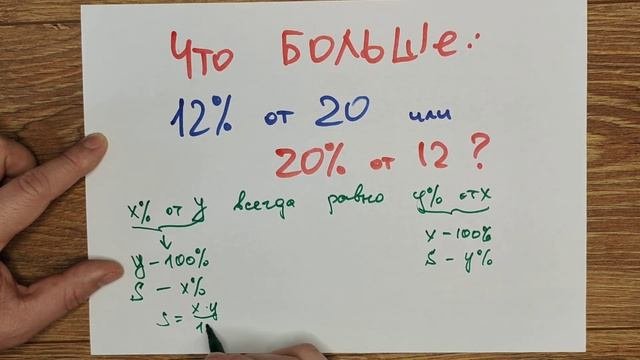 Что БОЛЬШЕ:
12% от 20 или
20% от 12 ?
x% от y всегда равно y% от x
y - 100%
S - x%
S = x·y / 1
x - 100%
S - y%